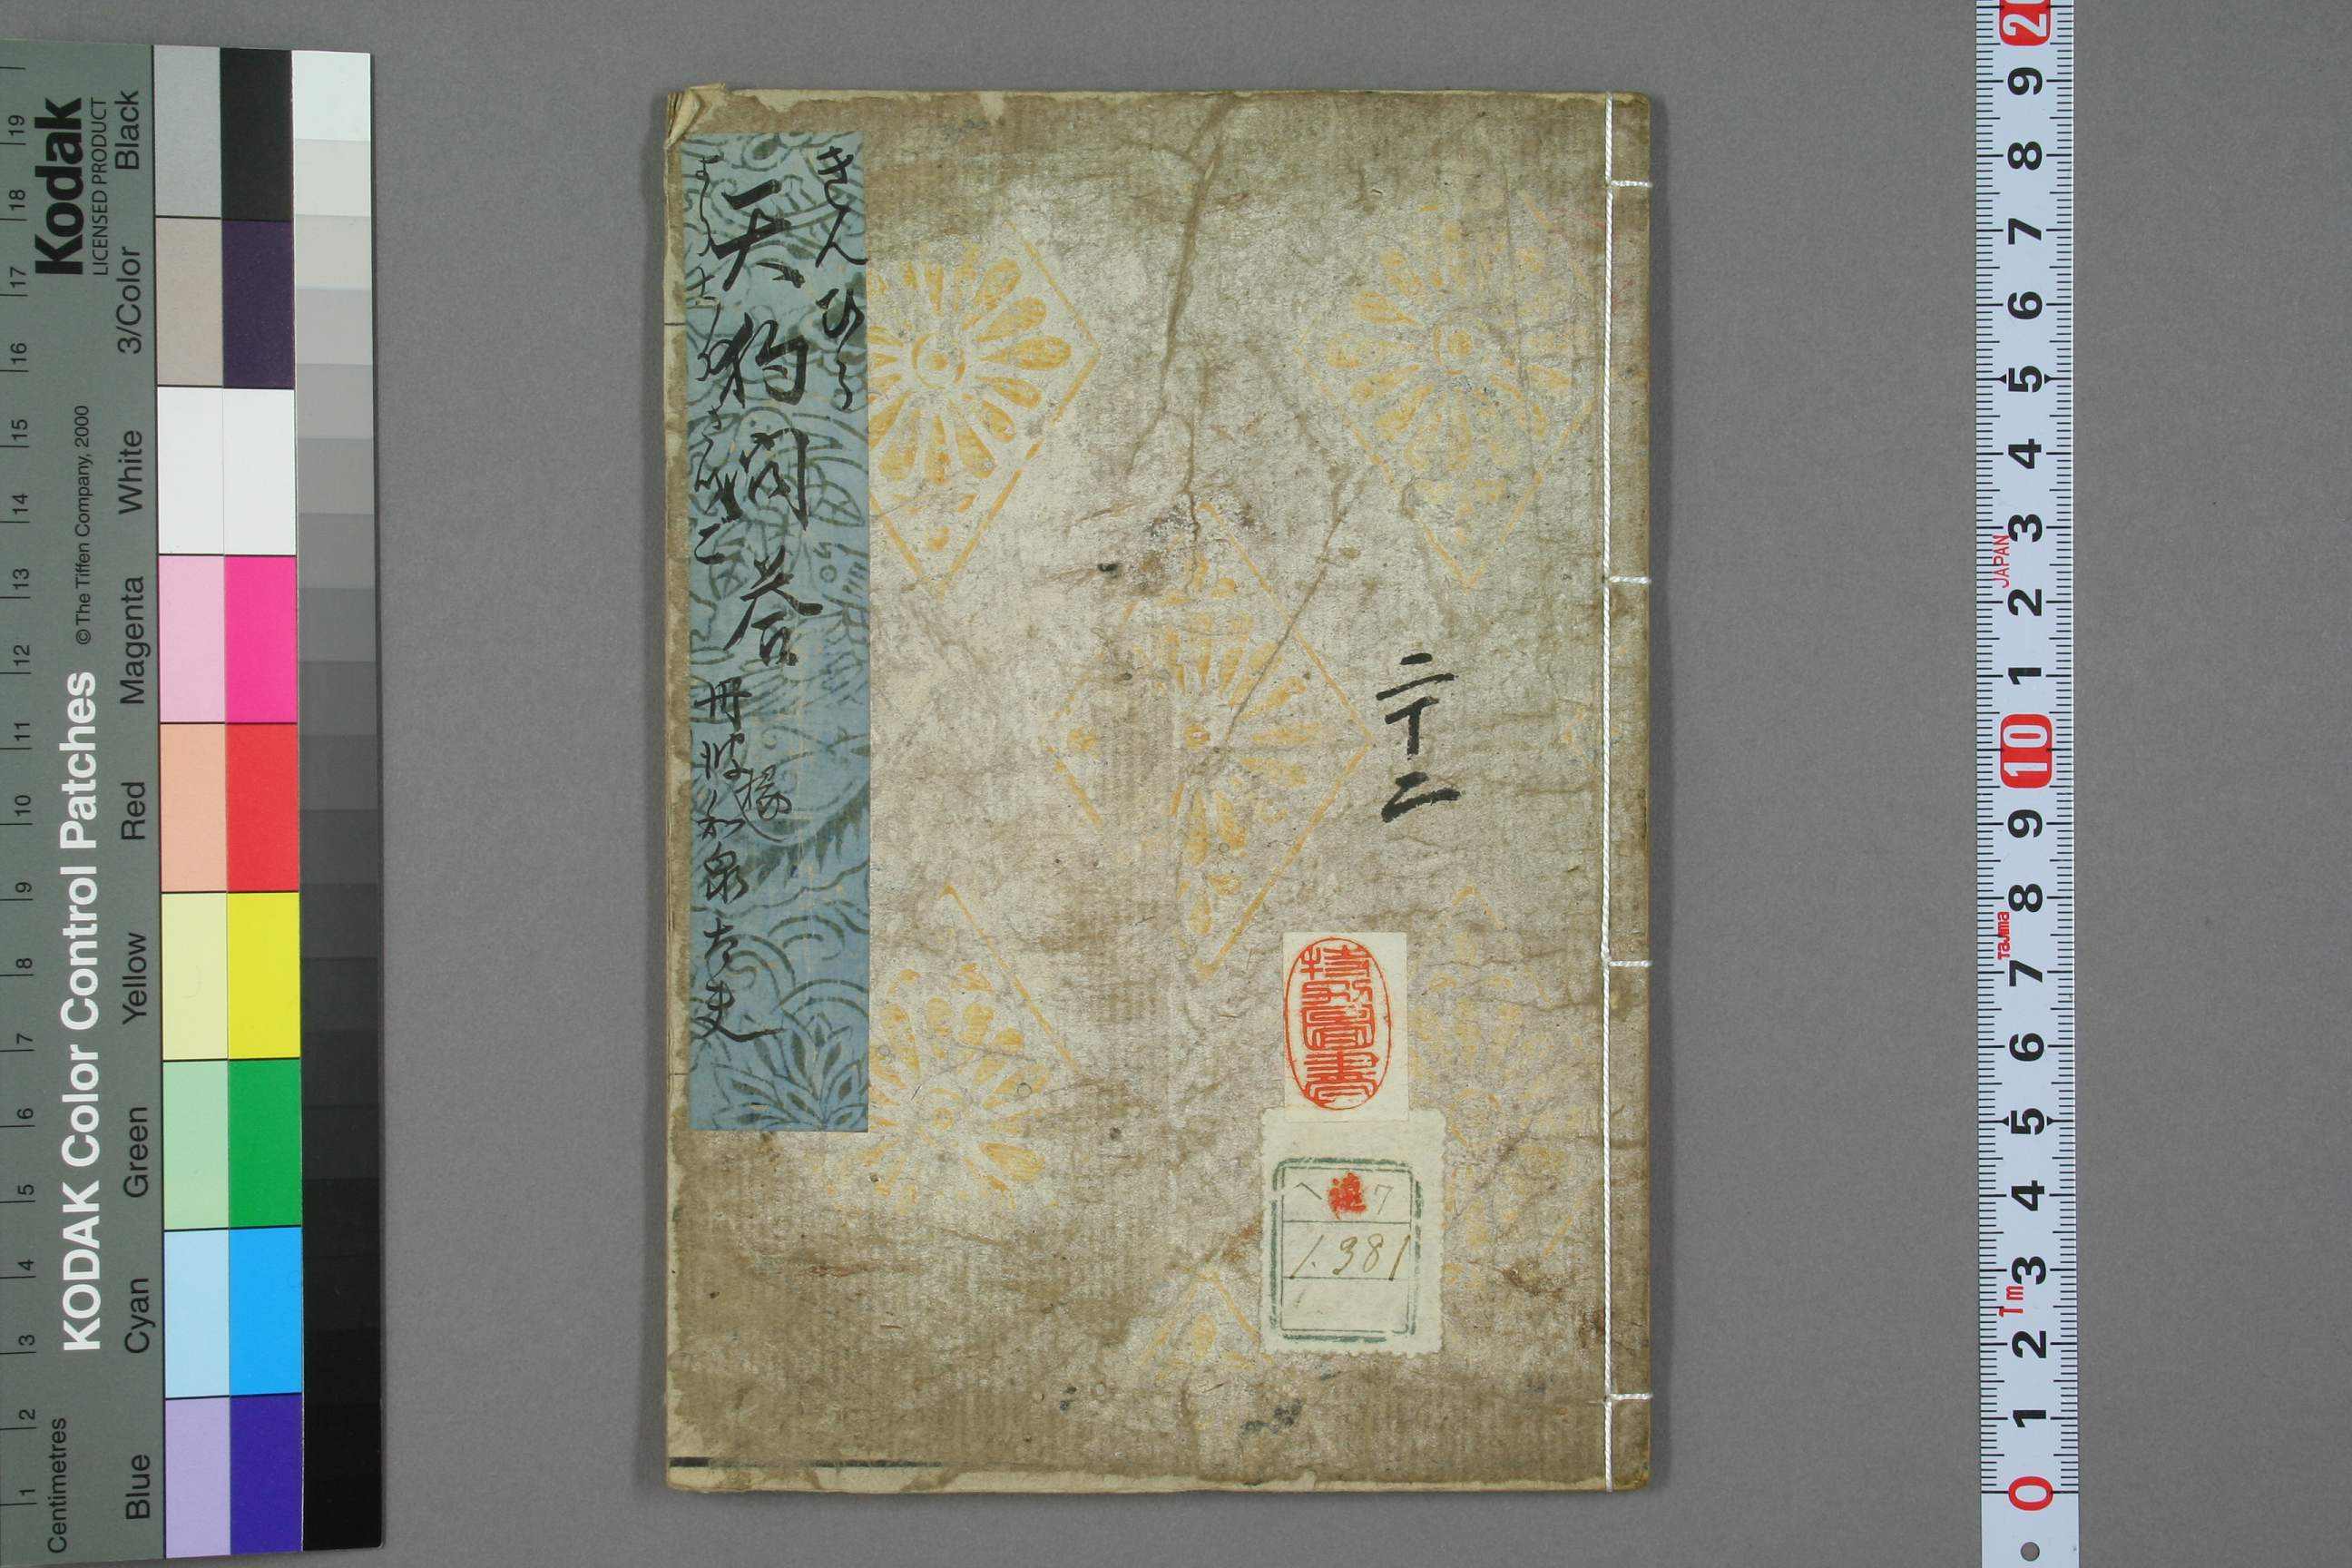 Kodak
LICENSED PRODUCT
KODAK Color Control Patches
© The Tiffen Company, 2000
Centimetres
Blue
Cyan
Green
Yellow
Red
Magenta
White
3/Color
Black
1 2 3 4 5 6 7 8 9 10 11 12 13 14 15 16 17 18 19
二十二
きんひら
天狗問答
丹波
掾
和泉太夫
ヘ 7
1.381
20
9
8
7
6
5
4
3
JAPAN
2
1
10
9
8
Tajima
7
6
5
4
3
Tm
2
1
0